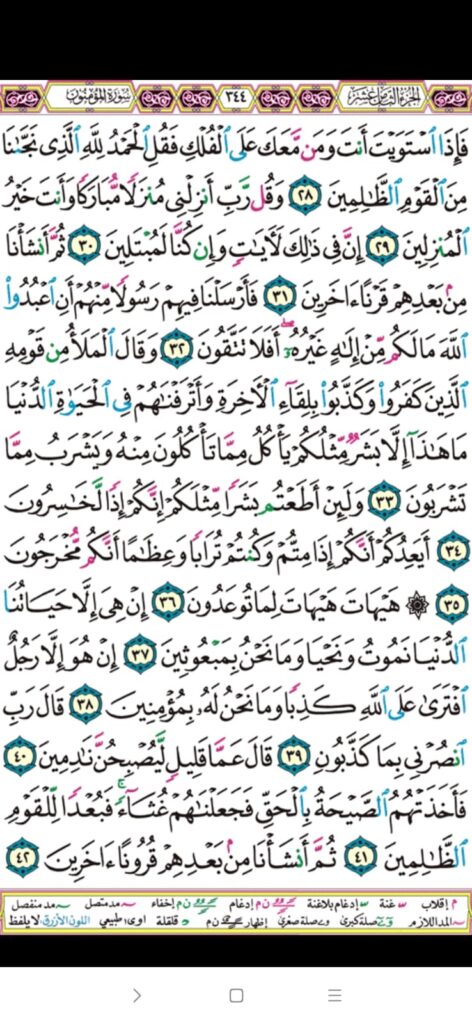 سورة المؤمنون ٣٤٤ الجزء الثامن عشر
فَإِذَا ٱسْتَوَيْتَ أَنتَ وَمَن مَّعَكَ عَلَى ٱلْفُلْكِ فَقُلِ ٱلْحَمْدُ لِلَّهِ ٱلَّذِى نَجَّىٰنَا
مِنَ ٱلْقَوْمِ ٱلظَّٰلِمِينَ ٢٨ وَقُل رَّبِّ أَنزِلْنِى مُنزَلًا مُّبَارَكًا وَأَنتَ خَيْرُ
ٱلْمُنزِلِينَ ٢٩ إِنَّ فِى ذَٰلِكَ لَءَايَٰتٍ وَإِن كُنَّا لَمُبْتَلِينَ ٣٠ ثُمَّ أَنشَأْنَا
مِنۢ بَعْدِهِمْ قَرْنًا ءَاخَرِينَ ٣١ فَأَرْسَلْنَا فِيهِمْ رَسُولًا مِّنْهُمْ أَنِ ٱعْبُدُوا۟
ٱللَّهَ مَا لَكُم مِّنْ إِلَٰهٍ غَيْرُهُۥٓ أَفَلَا تَتَّقُونَ ٣٢ وَقَالَ ٱلْمَلَأُ مِن قَوْمِهِ
ٱلَّذِينَ كَفَرُوا۟ وَكَذَّبُوا۟ بِلِقَآءِ ٱلْءَاخِرَةِ وَأَتْرَفْنَٰهُمْ فِى ٱلْحَيَوٰةِ ٱلدُّنْيَا
مَا هَٰذَآ إِلَّا بَشَرٌ مِّثْلُكُمْ يَأْكُلُ مِمَّا تَأْكُلُونَ مِنْهُ وَيَشْرَبُ مِمَّا
تَشْرَبُونَ ٣٣ وَلَئِنْ أَطَعْتُم بَشَرًا مِّثْلَكُمْ إِنَّكُمْ إِذًا لَّخَٰسِرُونَ
٣٤ أَيَعِدُكُمْ أَنَّكُمْ إِذَا مِتُّمْ وَكُنتُمْ تُرَابًا وَعِظَٰمًا أَنَّكُم مُّخْرَجُونَ
٣٥ ۞ هَيْهَاتَ هَيْهَاتَ لِمَا تُوعَدُونَ ٣٦ إِنْ هِىَ إِلَّا حَيَاتُنَا
ٱلدُّنْيَا نَمُوتُ وَنَحْيَا وَمَا نَحْنُ بِمَبْعُوثِينَ ٣٧ إِنْ هُوَ إِلَّا رَجُلٌ
ٱفْتَرَىٰ عَلَى ٱللَّهِ كَذِبًا وَمَا نَحْنُ لَهُۥ بِمُؤْمِنِينَ ٣٨ قَالَ رَبِّ
ٱنصُرْنِى بِمَا كَذَّبُونِ ٣٩ قَالَ عَمَّا قَلِيلٍ لَّيُصْبِحُنَّ نَٰدِمِينَ ٤٠
فَأَخَذَتْهُمُ ٱلصَّيْحَةُ بِٱلْحَقِّ فَجَعَلْنَٰهُمْ غُثَآءً ۚ فَبُعْدًا لِّلْقَوْمِ
ٱلظَّٰلِمِينَ ٤١ ثُمَّ أَنشَأْنَا مِنۢ بَعْدِهِمْ قُرُونًا ءَاخَرِينَ ٤٢
م إقلاب غنة إدغام بلاغنة ن م إدغام ن م إخفاء مد متصل مد منفصل
المد اللازم صلة كبرى وصلة صغرى إظهار ن م قلقلة اوى طبيعي اللون الأزرق لا يلفظ